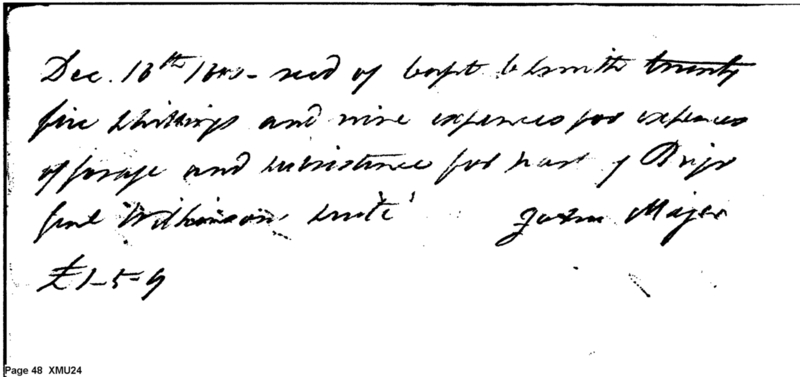 Dec. 18th 1800 - recd of Capt C Smith twenty
five shillings and nine expences for expences
of forage and subsistance for part of Brigr
Genl Wilkinson suite
John Major
£1-5-9
Page 48 XMU24